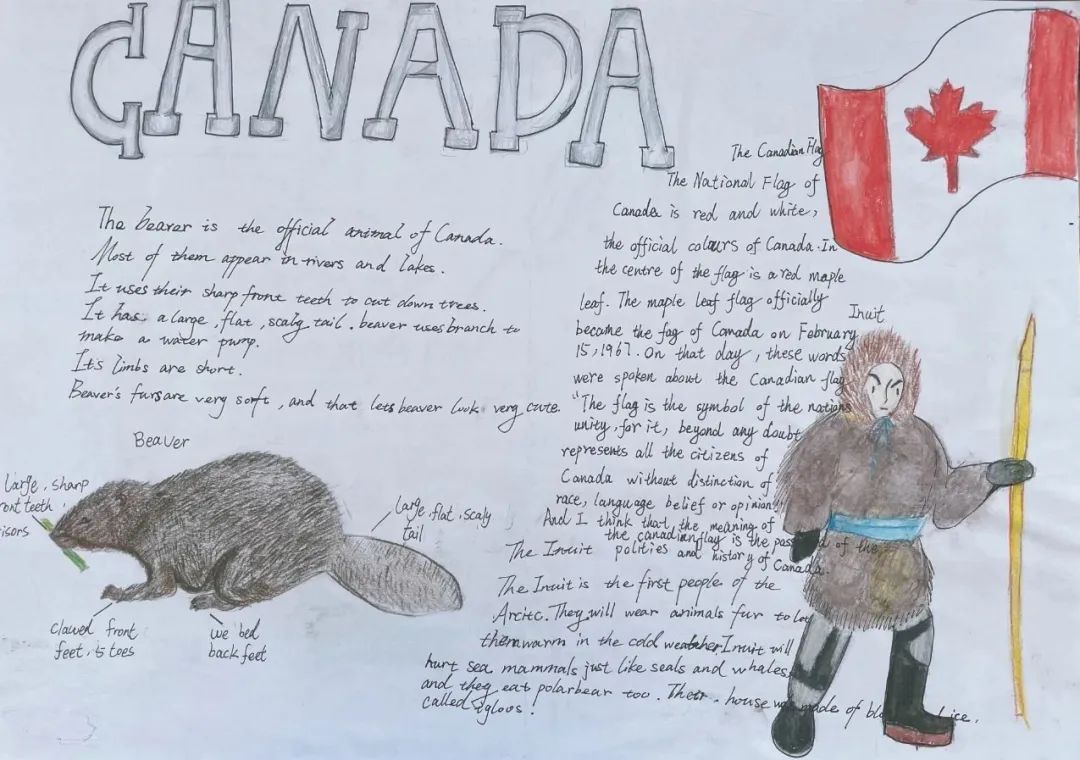 CANADA
The beaver is the official animal of Canada.
Most of them appear in rivers and lakes.
It uses their sharp front teeth to cut down trees.
It has a large, flat, scaly tail, beaver uses branch to
make a water pump.
It's limbs are short.
Beaver's furs are very sorft, and that lets beaver look very cute.
Beaver
large, sharp
front teeth
isors
large, flat, scaly
tail
clawed front
feet, 5 toes
we bed
back feet
The Canadian Flag
The National Flag of
Canada is red and white,
the official colours of Canada. In
the centre of the flag is a red maple
leaf. The maple leaf flag officially
become the fag of Canada on February
15, 1967. On that day, these words
were spoken about the Canadian flag
"The flag is the symbol of the nations
unity, for it, beyond any doubt
represents all the citizens of
Canada without distinction of
race, language belief or opinion."
And I think that the meaning of
the canadian flay is the of the
polities and history of Canada.
The Inuit
The Inuit is the first people of the
Arcitc. They will wear animals fur to let
them warm in the cold weather. Inuit will
hurt sea mammals just like seals and whales,
and they eat polarbear too. Their house was made of ice,
called iglous!
Inuit